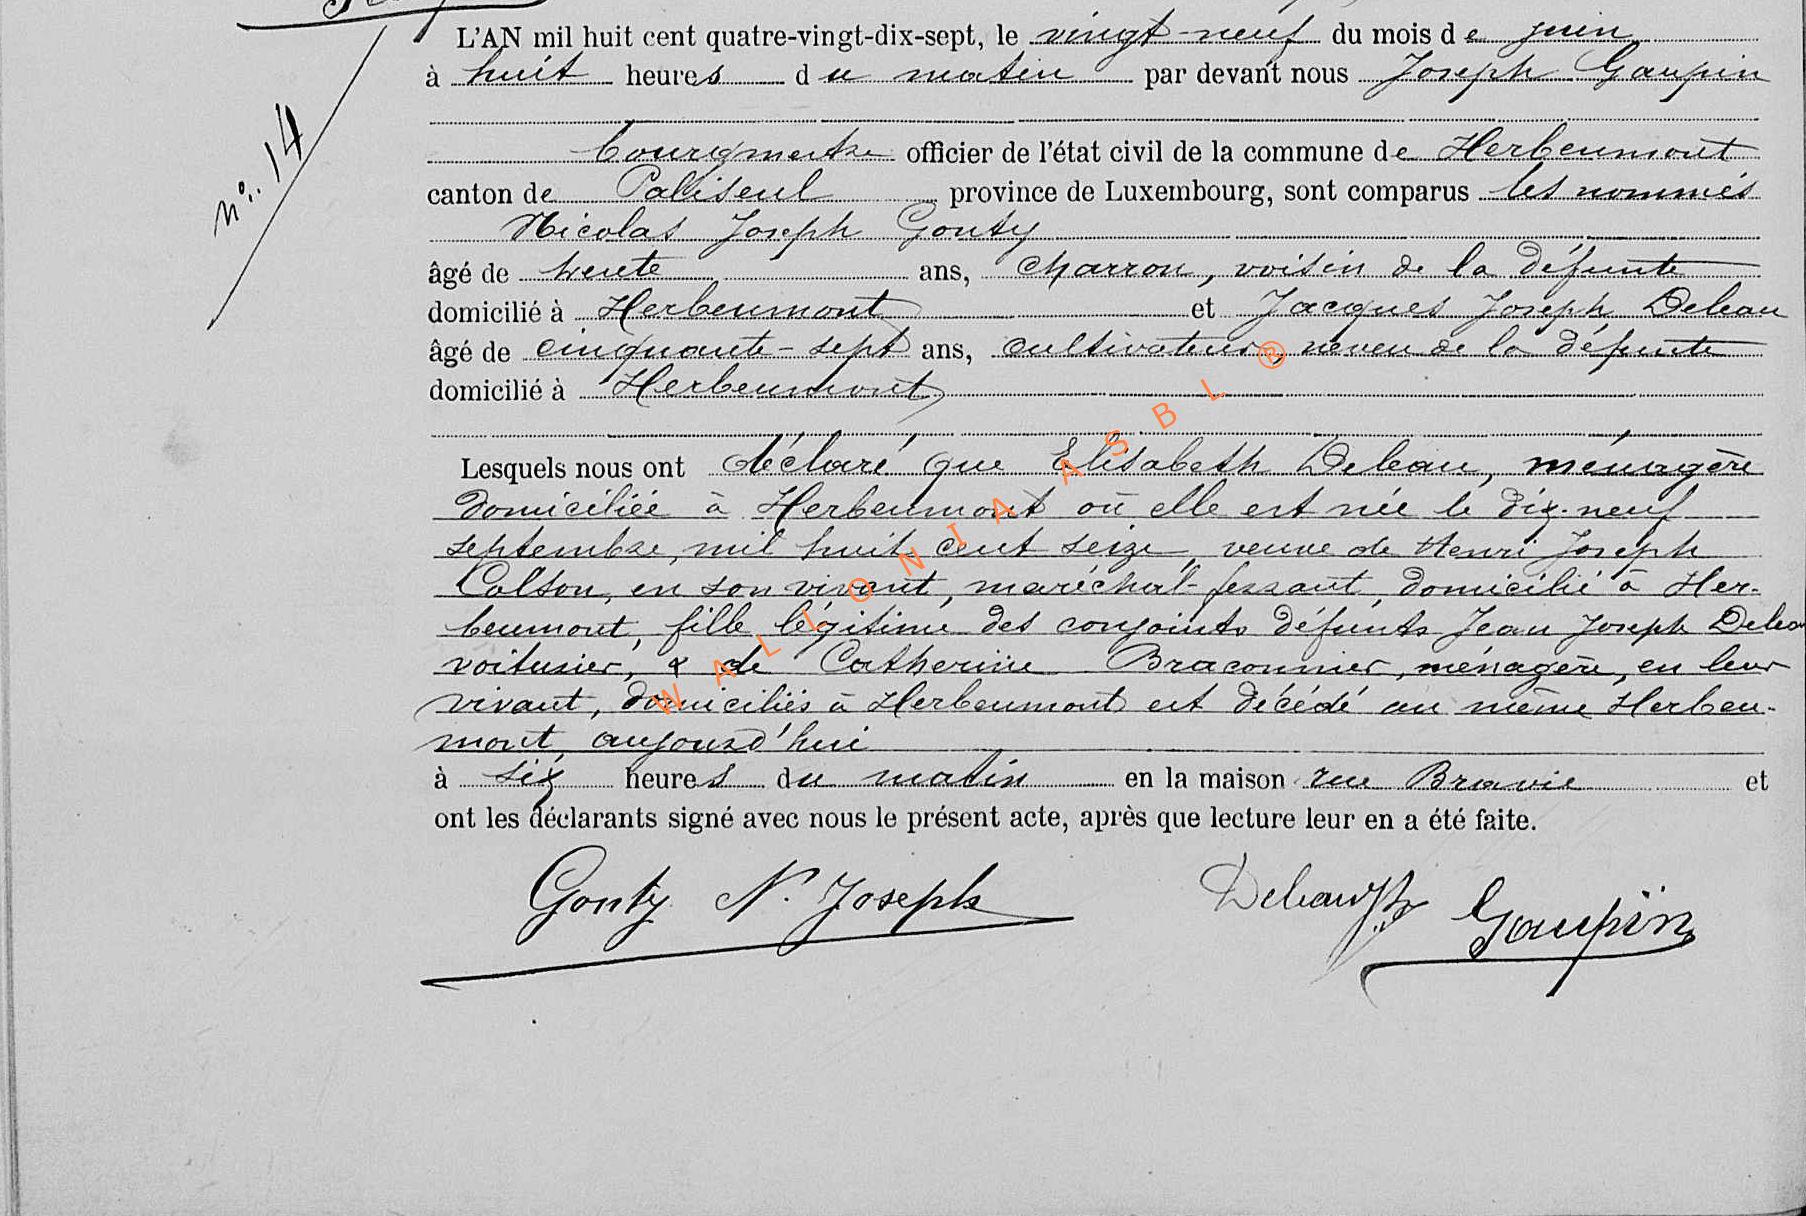 L'AN mil huit cent quatre-vingt-dix-sept, le vingt-neuf du mois de juin
à huit heures du matin par devant nous Joseph Gaupin
n°. 14
bourgmestre officier de l'état civil de la commune de Herbeumont
canton de Paliseul province de Luxembourg, sont comparus les nommés
Nicolas Joseph Gonty
âgé de trente ans, charron, voisin de la défunte
domicilié à Herbeumont et Jacques Joseph Deleau
âgé de cinquante-sept ans, cultivateur, neveu de la défunte
domicilié à Herbeumont
Lesquels nous ont déclaré que Elisabeth Deleau, ménagère
domiciliée à Herbeumont où elle est née le dix-neuf
septembre mil huit cent seize, veuve de Henri Joseph
Colson, en son vivant, maréchal-ferrant, domicilié à Her-
beumont, fille légitime des conjoints défunts Jean Joseph Deleau
voiturier, & de Catherine Braconnier, ménagère, en leur
vivant, domiciliés à Herbeumont est décédé au même Herbeu-
mont, aujourd'hui
à six heures du matin en la maison rue Bravie et
ont les déclarants signé avec nous le présent acte, après que lecture leur en a été faite.
Gonty N. Joseph Deleau Gaupin
WALLONIA ASBL ®